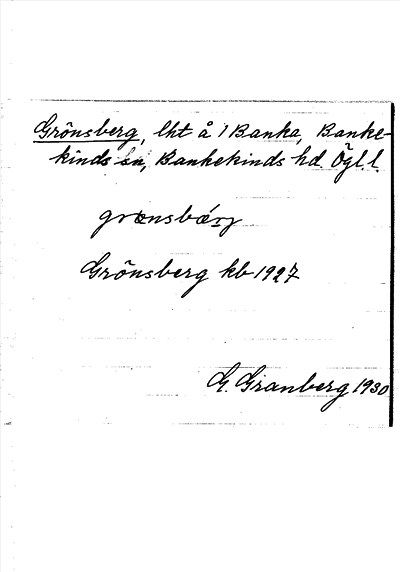 Grönsberg, lht å 1 Banka, Banke-
kinds sn, Bankekinds hd. Ögl. l.
grœnsbærj
Grönsberg kb 1927
G. Granberg 1930